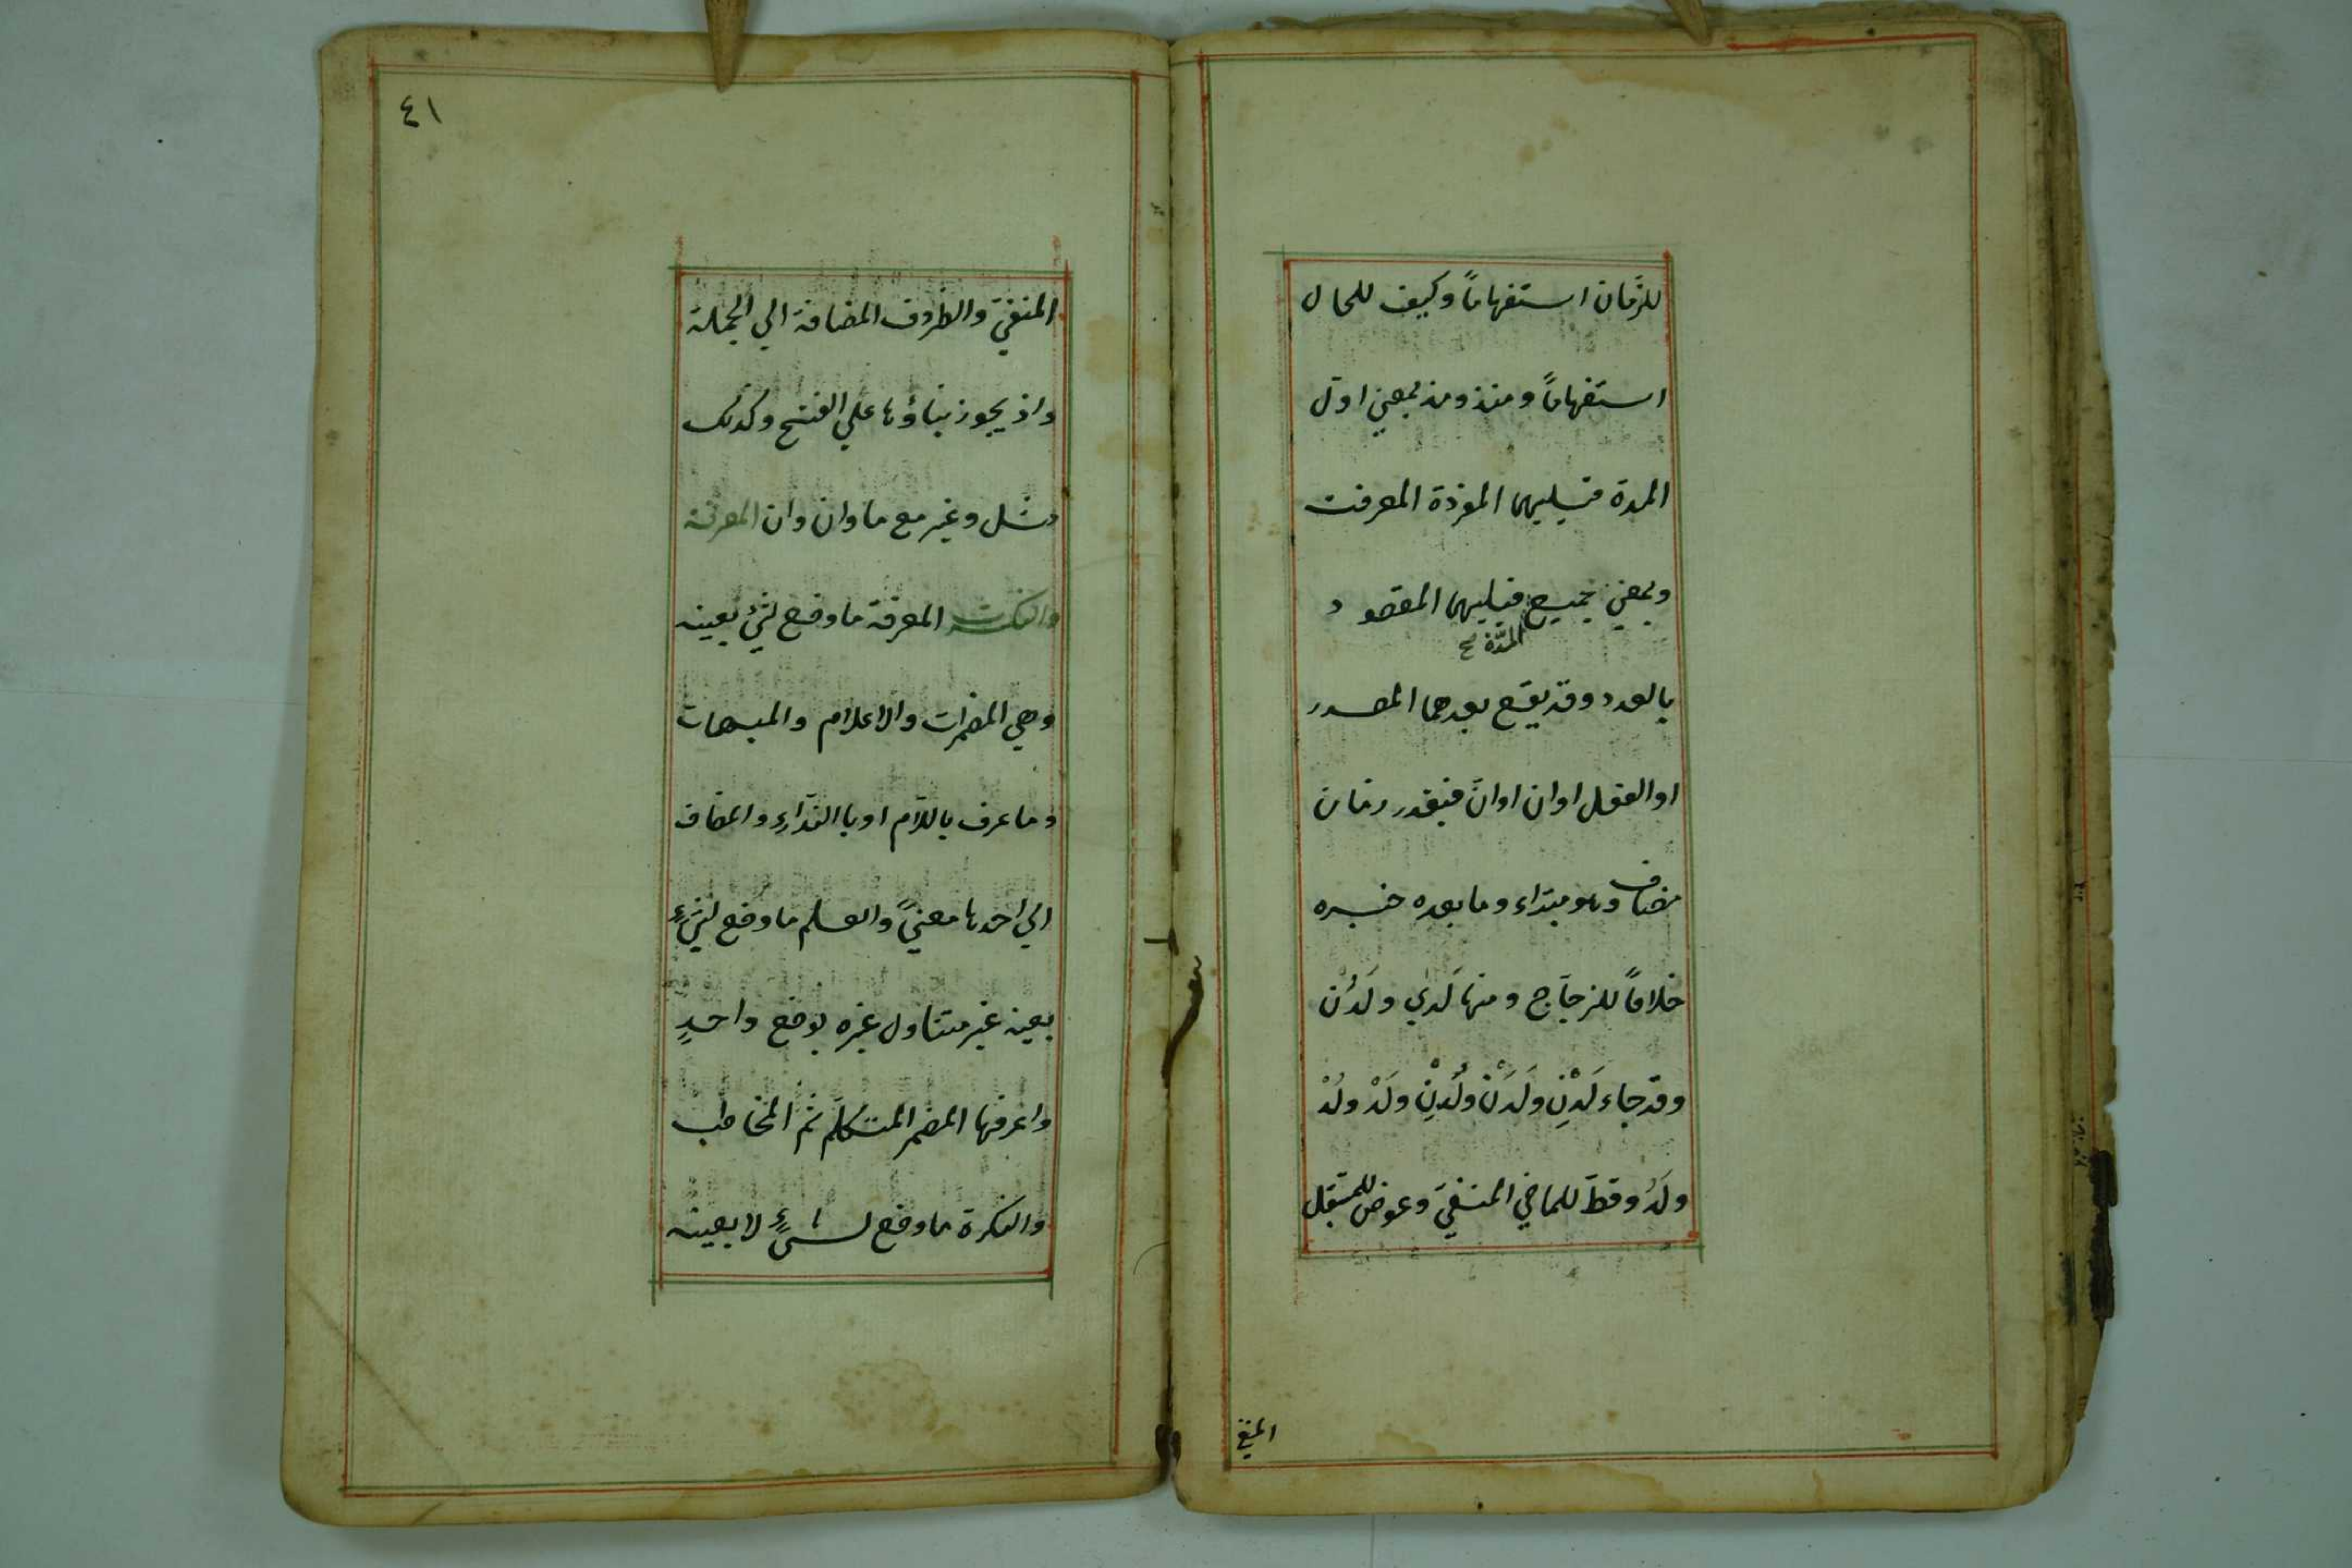 للزّمان استفهاماً وكيف للحال
استفهاماً ومنذ ومذ بمعني اوّل
المدة فيليهما المفردة المعرفت
وبمعني جميع فيليهما المقصود
المدّة صح
بالعدد وقد يقع بعدهما المصدر
او الفعل او ان او انّ فيقدر زمان
مضاف وهو مبتداء وما بعده خبره
خلافاً للزجاج ومنها لَدي ولَدُنْ
وقد جاء لَدْنِ ولَدَنْ ولُدْنِ ولَدْ ولُدْ
ولَدُ وقطّ للماضي المنفيّ وعوض للمستقبل
المنفيّ
٤١
المنفيّ والظروف المضافة الي الجملة
واذ يجوز بناؤها علي الفتح وكذلك
مثل وغير مع ما وان وان المعرفة
والنكرت المعرفة ما وضع لشئ بعينه
وهي المضمرات والاعلام والمبهمات
وما عرف باللّام او با النّداءِ والمضاف
الي احدها معنيً والعلم ما وضع لشيءٍ
بعينه غير متناول غيره بوضع واحدٍ
واعرفها المضمر المتكلّم ثم المخاطب
والنكرة ما وضع لشيءٍ لا بعينه